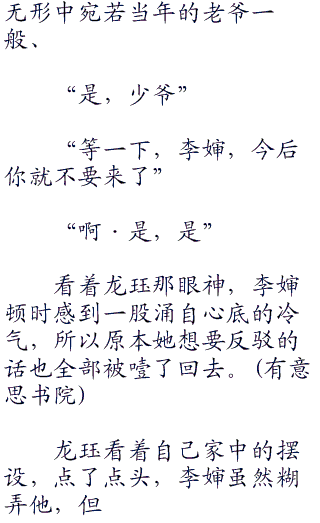 无形中宛若当年的老爷一
般、
“是，少爷”
“等一下，李婶，今后
你就不要来了”
“啊·是，是”
看着龙珏那眼神，李婶
顿时感到一股涌自心底的冷
气，所以原本她想要反驳的
话也全部被噎了回去。(有意
思书院)
龙珏看着自己家中的摆
设，点了点头，李婶虽然糊
弄他，但